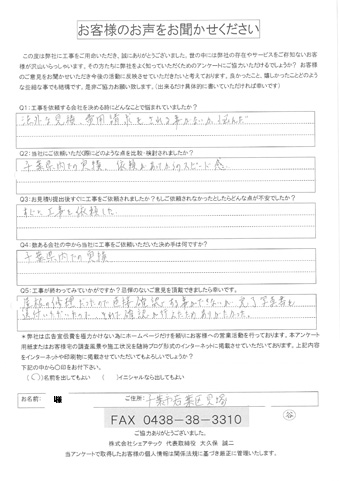 お客様のお声をお聞かせください
この度は弊社に工事をご用命いただき、誠にありがとうございました。世の中には弊社の存在やサービスをご存知ないお客
様が沢山いらっしゃいます。その方たちに弊社をよく知っていただくためのアンケートにご協力いただけるでしょうか？お客様
のご意見をお聞かせいただき今後の活動に反映させていただきたいと考えております。良かったこと、嬉しかったことどのよう
な些細な事でも結構です。是非ご協力お願い致します。(出来るだけ具体的に書いていただければ幸いです)
Q1:工事を依頼する会社を決める時にどんなことで悩まれていましたか？
法外な見積、費用請求をされる事がないか悩んだ
Q2:当社にご依頼いただく際にどのような点を比較・検討されましたか？
千葉県内での実績、依頼をあてからのスピード感
Q3:お見積り提出後すぐに工事をご依頼されましたか？もしご依頼されなかったとしたらどんな点が不安でしたか？
すぐに工事を依頼した
Q4:数ある会社の中から当社に工事をご依頼いただいた決め手は何ですか？
千葉県内での実績
Q5:工事が終わってみていかがですか？忌憚のないご意見を頂戴できましたら幸いです。
屋根の修理だったので直接確認
＊弊社は広告宣伝費を極力かけない為にホームページだけを頼りにお客様への営業活動を行っております。本アンケート
用紙またはお客様宅の調査風景や施工状況を随時ブログ形式のインターネットに掲載させていただいております。上記内容
をインターネットや印刷物に掲載させていただいてもよろしいでしょうか？
下記の中から〇印をお付下さい。
(〇)名前を出してもよい (　)イニシャルなら出してもよい
お名前: 様 ご住所: 千葉市若葉区貝塚
FAX 0438-38-3310
ご協力ありがとうございました。
株式会社シェアテック 代表取締役 大久保 誠二
当アンケートで取得したお客様の個人情報は関係法規に基づき厳正に管理いたします。